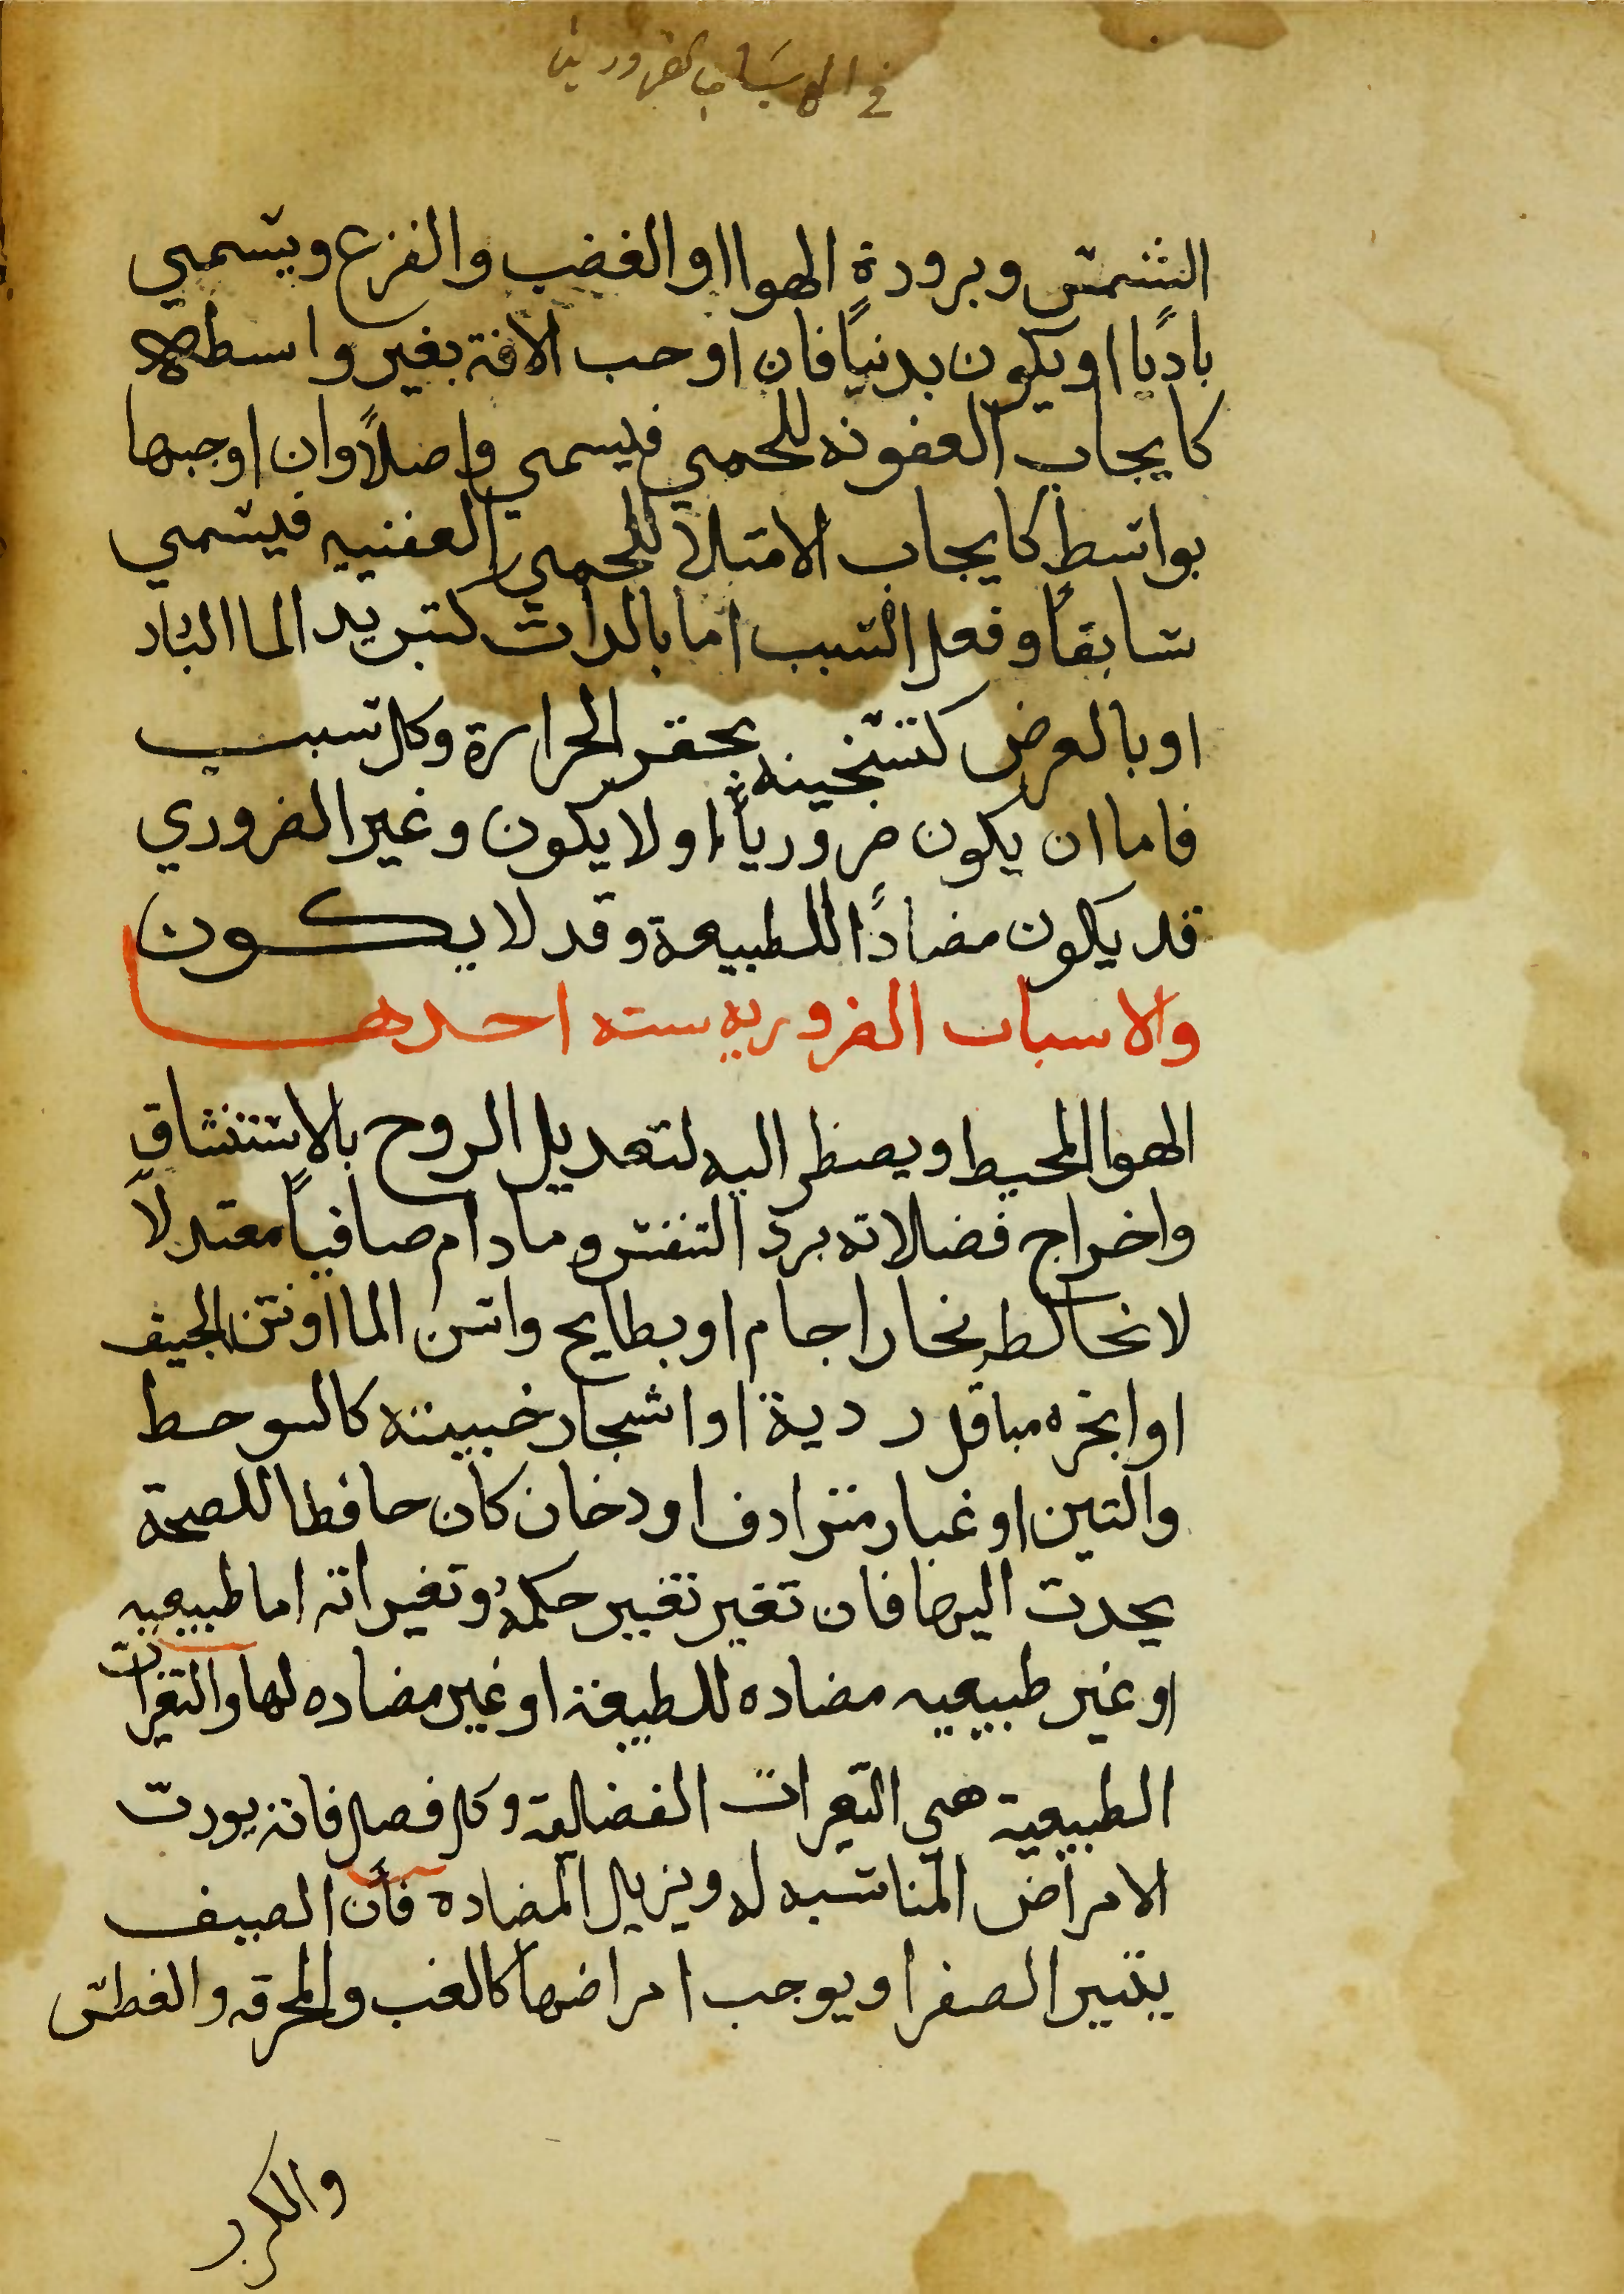 في الاسباب الضرورية
الشمس وبرودة الهوا او الغضب والفزع ويسمي
باديًا او يكون بدنيًا فان اوجب الافة بغير واسطه
كايجاب العفونه للحمي فيسمي واصلاً وان اوجبها
بواسط كايجاب الامتلا للحمي العفنيه فيسمي
سابقاً وفعل السبب اما بالدات كتبريد الما البارد
او بالعرض كتسخينه بحقن الحرارة وكل سبب
فاما ان يكون ضرورياً او لا يكون وغير الضروري
قد يكون مضادًا للطبيعة وقد لا يكون
والاسباب الضروريه سته احدها
الهوا المحيط ويضطر اليه لتعديل الروح بالاستنشاق
واخراج فضلاته برد التنفس وما دام صافياً معتدلاً
لا نخالطه بخار اجام او بطايح واسن الما او نتن الجيف
او ابخره مباقل ردية او اشجار خبيثه كالسوحط
والتين او غبار مترادف او دخان كان حافطا للصحة
يحدت اليها فان تغير تغيير حكمهُ وتغيراته اما طبيعيه
او غير طبيعيه مضاده للطبيعة او غير مضاده لها والتغيرات
الطبيعية هي التغيرات الفضلية وكل فصل فانه يورت
الامراض المناسبه له ويزيل المضاده فأن الصيف
يتير الصفرا ويوجب امراضها كالغب والمحرقه والعطش
والكرب